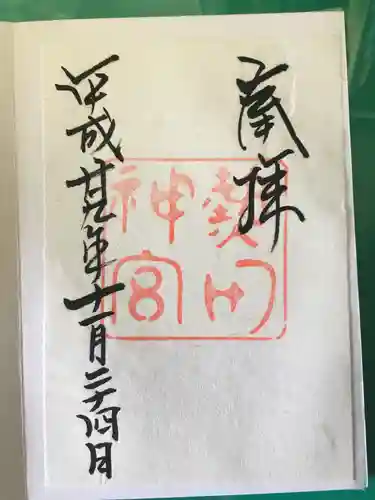 奉拝
熱田
神宮
平成廿九年十一月二十四日